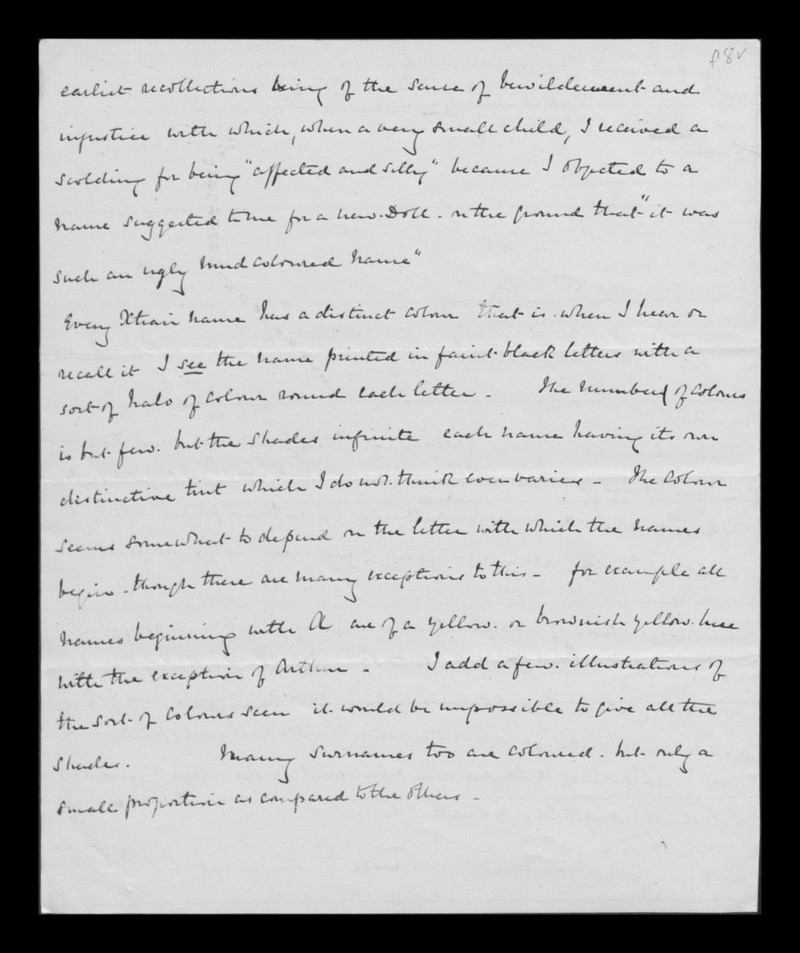 f8v
earliest recollections being of the sense of bewilderment and
injustice with which, when a very small child, I received a
scolding for being "affected and silly" because I objected to a
name suggested to me for a new Doll. on the ground that "it was
such an ugly mud coloured name"
Every Xtian name has a distinct colour that is. when I hear or
recall it I see the name printed in faint black letters with a
sort of halo of colour round each letter - The number of colours
is but few. but the shades infinite each name having its own
distinctive tint which I do not think ever varies - The colour
seems somewhat to depend on the letter with which the names
begin - though there are many exceptions to this - for example all
names beginning with A are of a yellow. or brownish yellow. hue
with the exception of Arthur - I add a few. illustrations of
the sort of colours seen it would be impossible to give all the
shades. Many surnames too are coloured. but only a
small proportion as compared to the others -